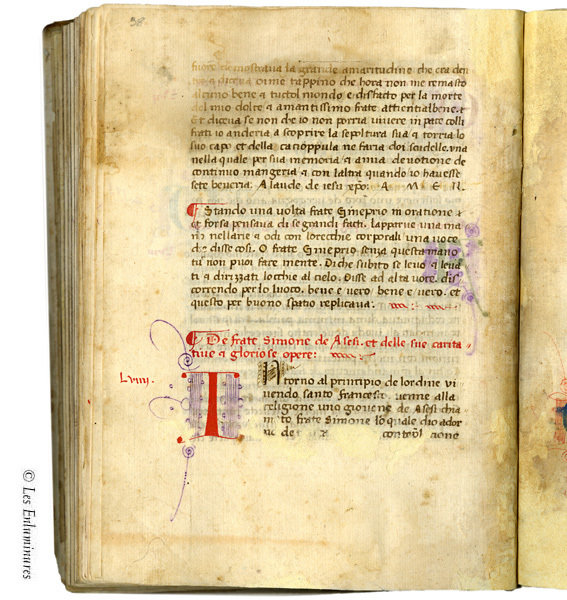 38
fuore demostraua la grande amaritudine che era den
tro & diceua oime tappino che hora non me remasto
alcuno bene & tuctol mondo e disfacto per la morte
del mio dolce & amantissimo frate attientialbene. et
Et diceua se non che io non porria uiuere in pace colli
frati io anderia a scoprire la sepoltura sua & torria lo
suo capo et della cacioppula ne faria doi scudelle. una
nella quale per sua memoria & a mia deuotione de
continuo mangeria & con laltra quando io hauesse
sete beueria. A laude de iesu xpo. A M E N.
Stando una uolta frate Gineprio in oratione &
et forsa pensaua di se grandi facti. Lapparue una ma
no nellarie & odi con lorecchie corporali una uoce
che disse cosi. O frate Gineprio senza questa mano
tu non puoi fare mente. Di che subito se leuo & leua
ti & dirizati locchie al cielo. Disse ad alta uoce. dis
correndo per lo luoco. bene e uero bene e uero. et
questo per buono spatio replicaua.
De frate Simone de Asesi. et delle sue carita
tiue & gloriose opere:
Lviiij.
IN torno al principio de lordine vi
uendo santo Francesco. uenne alla
religione uno giouene de Asesi chia
mato frate Simone lo quale dio ador
no de
© Les Enluminures